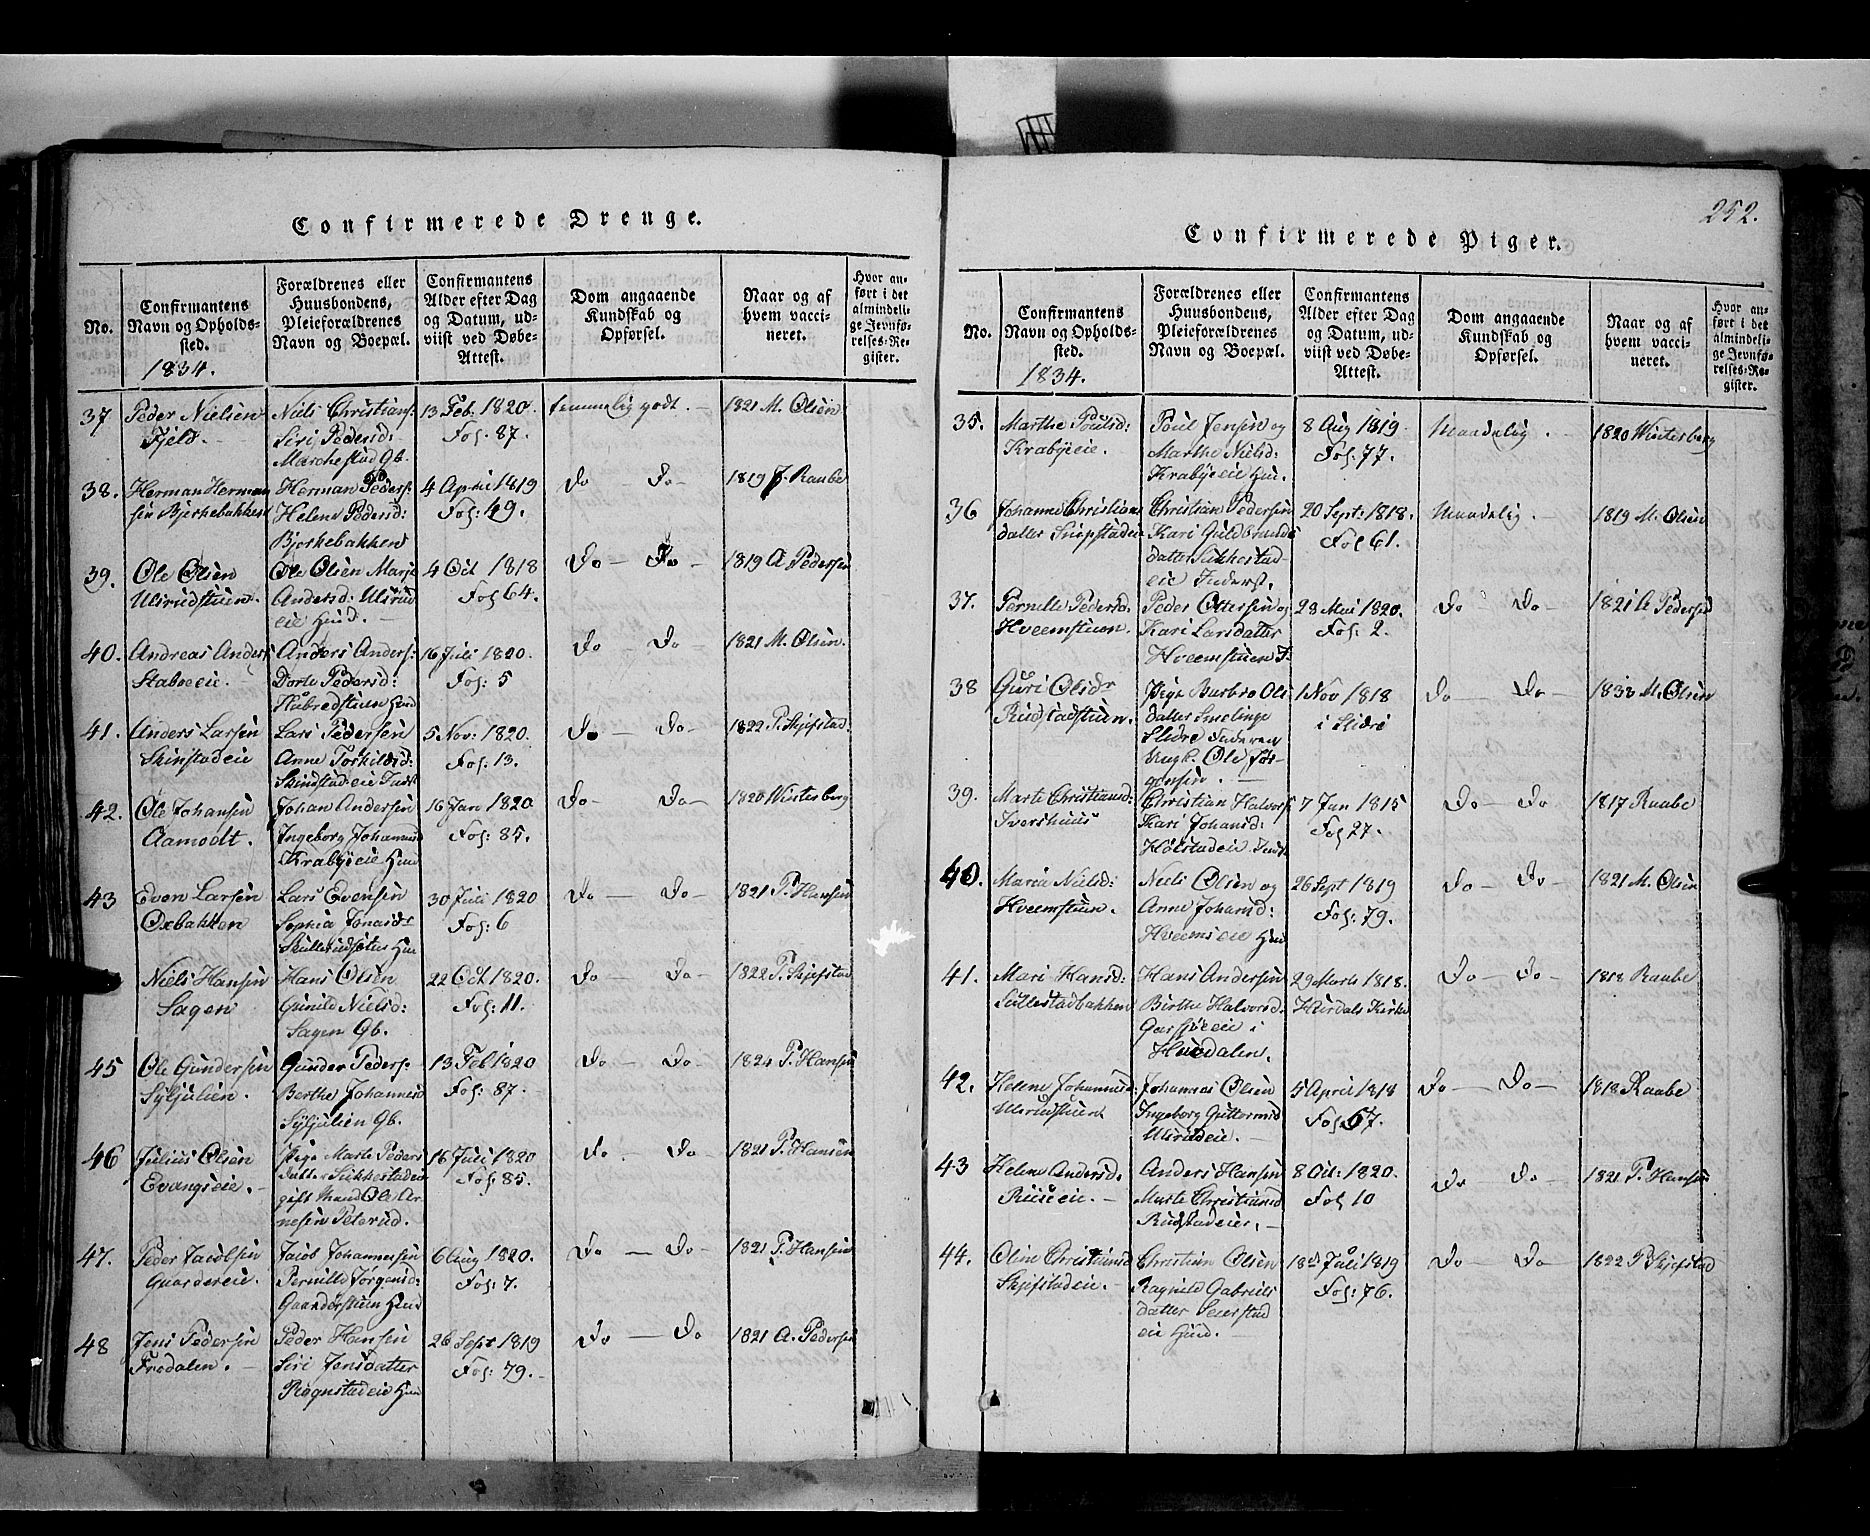 Confirmerede Drenge.
No.
Confirmantens
Navn og Opholds-
sted.
1834.
Forældrenes eller
Huusbondens,
Pleieforældrenes
Navn og Boepæl.
Confirmantens
Alder efter Dag
og Datum, ud-
viist ved Døbe-
Attest.
Dom angaaende
Kundskab og
Opførsel.
Naar og af
hvem vacci-
neret.
Hvor an-
ført i det
almindeli-
ge Jevnfø-
relses-Re-
gister.
37 Peder Nielsen
Fjeld.
Niels Christians:
Siri Pedersd:
Marchestad Gb.
13 Feb. 1820.
Fol: 87.
temmelig godt.
1821 M. Olsen
38. Herman Herman
sen Bjerkebakken
Herman Peders:
Helene Pedersd:
Bjerkebakken
4 April 1819
Fol: 49.
Do — Do —
1819 J. Raabe
39. Ole Olsen
Ulsrudstuen.
Ole Olsen Marje
Andersd: Ulsrud
eie Hund.
4 Oct 1818
Fol 64.
Do — Do —
1819 A Pedersen
40. Andreas Anders
Staboeie.
Anders Anders:
Dorte Pedersd:
16 Juli 1820.
Fol: 5
Do Do —
1821 M. Olsen.
41. Anders Larsen
Skinstadeie
Lars Pedersen
Anne Torkildsd:
Skindstadeie
5 Nov: 1820.
Fol: 13.
Do — Do —
1822 P. Skjefstad:
42. Ole Johansen
Aamodt.
Johan Andersen
Ingeborg Johannesd
Krabyeie Hund
16 Jan 1820
Fol: 85.
Do — Do —
1820 Winterberg
43 Even Larsen
Oxbakken
Lars Evensen
Sophia Jonasdr
30 Juli 1820
Fol: 6
Do — Do —
1821 P. Hansen
Niels Hansen
Sagen
Hans Olsen
Gunild Nielsd:
Sagen Gb.
22 Oct 1820.
Fol: 11.
Do — Do —
1822 P. Skjefstad
45 Ole Gundersen
Syljulien.
Gunder Peders:
Berthe Johannesd
Syljulien Gb.
13 Feb 1820
Fol: 87.
Do — Do —
1824 P. Hansen
46 Julius Olsen
Evangseie.
Pige Marte Peders
datter Sikkestadeie
gift Mand Ole Ar
nesen Peterud.
16 Juli 1820
Fol: 85.
Do Do —
1821 P. Hansen
47. Peder Jacobsen
Gaardereie.
Jacob Johannessen
Pernille Jørgensd:
Gaarderstuen Hund
6 Aug 1820.
Fol: 7.
Do — Do —
1821 P. Hansen
48 Jens Pedersen
Fredalen.
Peder Hansen
Siri Jensdatter
Rognstadeie Hun
26 Sept 1819
Fol: 79.
Do — Do
1821 A. Pedersen
252.
Confirmerede Piger.
No.
Confirmantens
Navn og Opholds-
sted.
1834.
Forældrenes eller
Huusbondens,
Pleieforældrenes
Navn og Boepæl.
Confirmantens
Alder efter Dag
og Datum, ud-
viist ved Døbe-
Attest.
Dom angaaende
Kundskab og
Opførsel.
Naar og af
hvem vacci-
neret.
Hvor an-
ført i det
almindeli-
ge Jevnfø-
relses-Re-
gister.
35. Marthe Poulsd:
Krabyeie.
Poul Jensen og
Marthe Nielsd:
Krabyeie Hun.
8 Aug 1819.
Fol: 77.
Maadelig.
1820 Winterberg
36 Johanne Christians
datter Snipstadeie
Christian Pedersen
Kari Guldbrands
datter Sikkestad-
eie Inderst.
20 Sept: 1818.
Fol 61.
Maadelig.
1819 M. Olsen
37. Pernille Pedersd.
Hveemstuen.
Peder Ottersen og
Kari Larsdatter
Hveemstuen
28 Mai 1820.
Fol: 2.
Do Do —
1821 A Pedersen
38 Guri Olsdr
Rudstadstuen.
Pige Barbro Ols
datter Smelinge
Slidre
Ungk. Ole Jør-
gensen.
1 Nov 1818
i Slidre
Do — Do —
1833 M. Olsen
39. Marte Christiansd:
Ivershuus
Christian Halvors
Kari Johansd:
Holstadeie
7 Jan 1815
Fol 27.
Do — Do
1817 Raabe
40. Maria Nielsd:
Hveemstuen.
Niels Olsen og
Anne Johansd:
Hveemseie Hund
26 Sept 1819
Fol: 79.
Do — Do —
1821 M. Olsen
41. Mari Hansd:
Sillestadbakken
Hans Andersen
Birthe Halvorsd
Garsjøeie i
Hurdalen.
29 Marts 1818.
Hurdals Kirke
Do — Do —
1818 Raabe
42. Helene Johannesd:
Ulsrudstuen
Johannes Olsen
Ingeborg Guttormsd
Ulsrudeie.
5 April 1818
Fol 57.
Do — Do —
1818 Raabe
43 Helene Andersd.
Riiseeie.
Anders Hansen
Marte Christiansd
Rudstadeier.
8 Oct: 1820.
Fol 10
Do Do —
1821 P. Hansen
44. Oline Christiansd
Skjefstadeie.
Christian Olsen
Ragnild Gabriels
datter Seierstad
eie Hund.
18de Juli 1819
Fol: 76.
Do — Do
1822 P Skjefstad